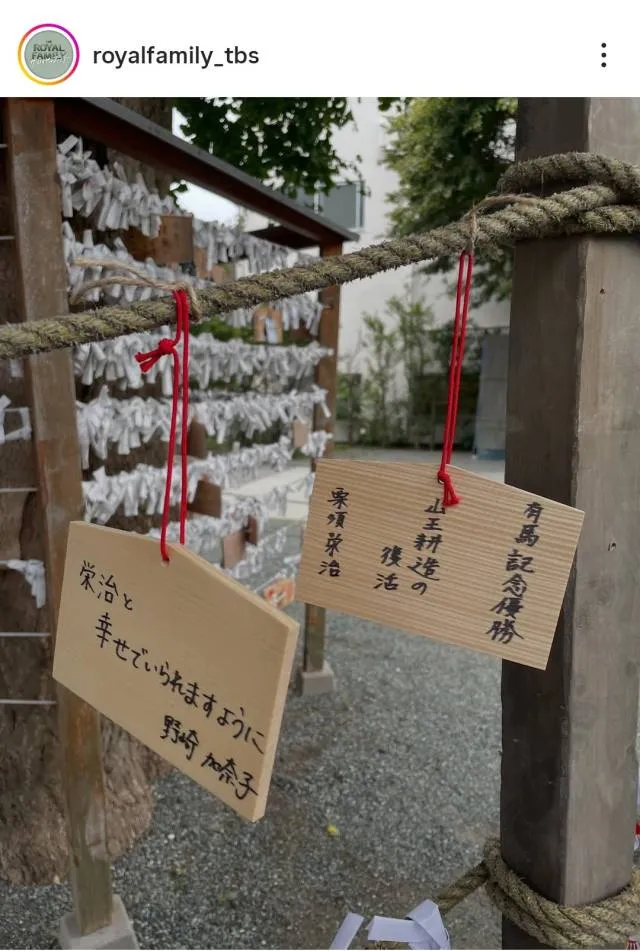 THE
ROYAL
FAMILY
royalfamily_tbs
栄治と
幸せでいられますように
野崎 加奈子
有馬記念優勝
山王耕造の
復活
栗須栄治